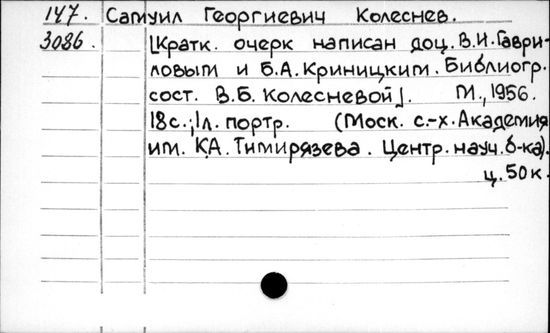 147. Самуил Георгиевич Колеснев.
3086. [Кратк. очерк написан доц. В.И. Гаври-
ловым и Б.А. Криницким. Библиогр.
сост. В.Б. Колесневой]. М., 1956.
18 с.; 1 л. портр. (Моск. с.-х. Академия
им. К.А. Тимирязева. Центр. науч. б-ка).
ц. 50 к.